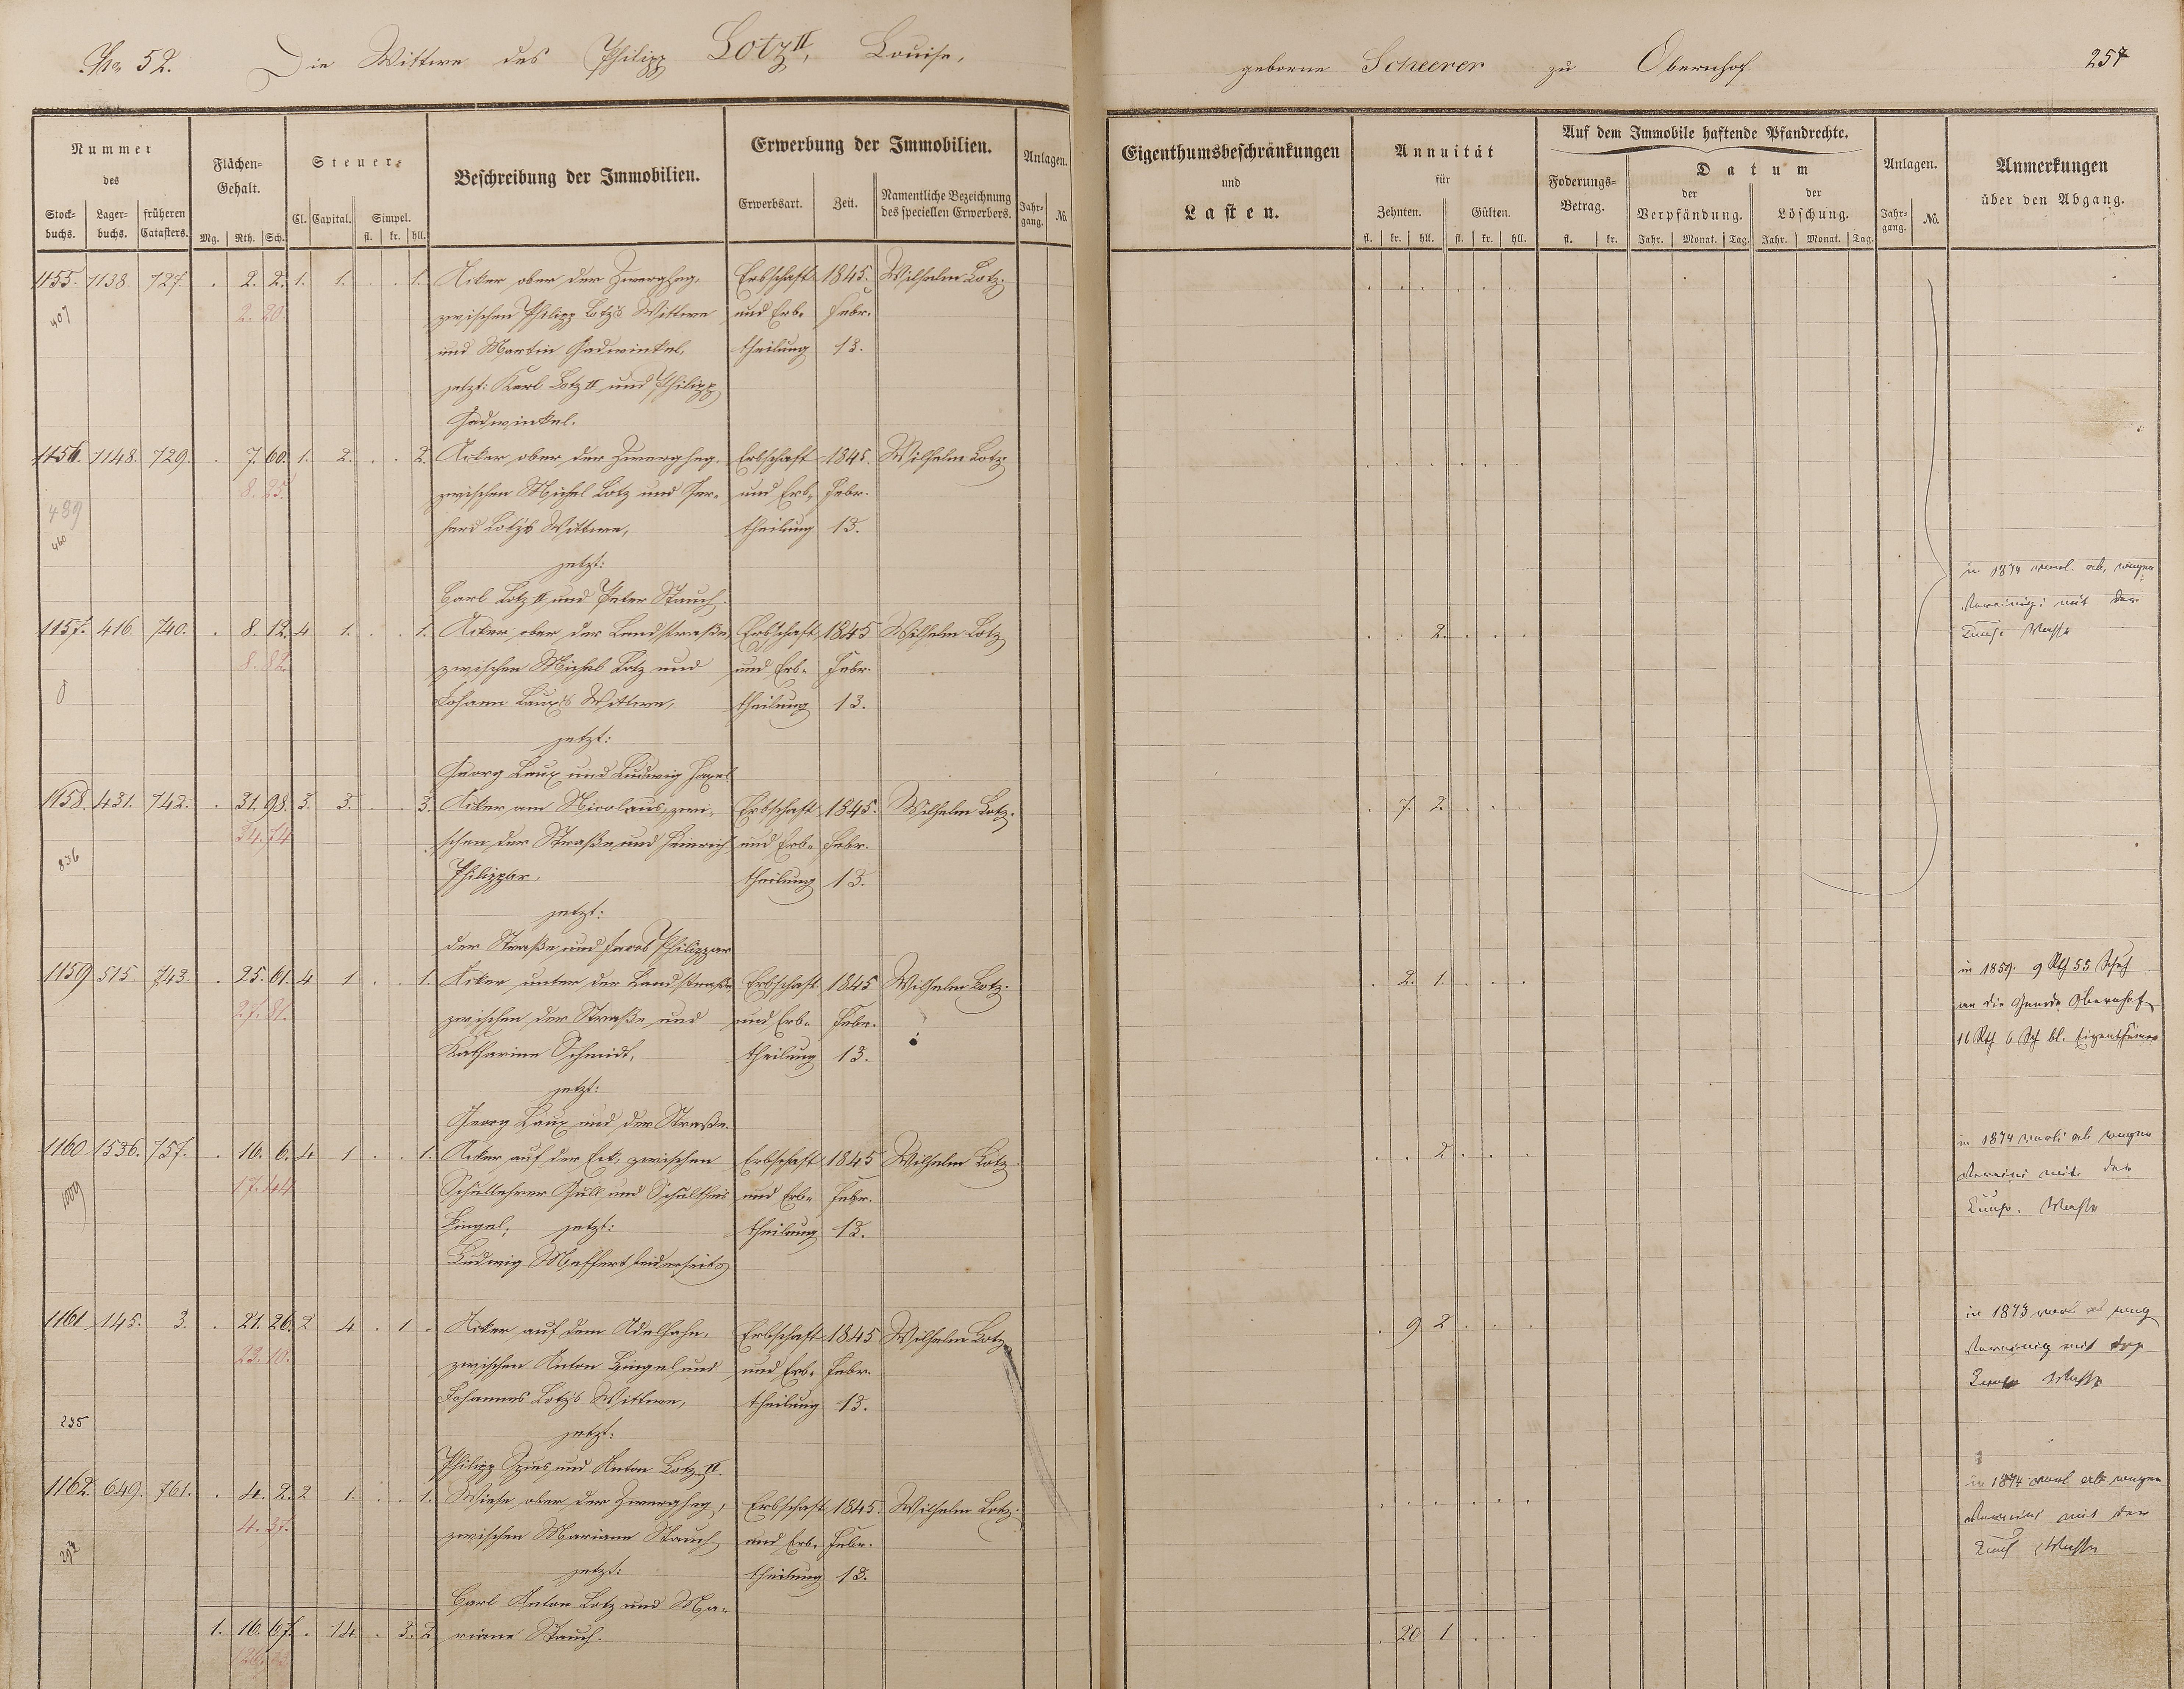 No 52. Die Wittwe des Philipp Lotz II, Louise, geborne Scheerer zu Obernhof. 257
Nummer des
Stockbuchs. Lagerbuchs. früheren Catasters.
Flächen-Gehalt.
Mg. Rth. Sch.
Steuer-
Cl. Capital. Simpel.
fl. kr. hll.
Beschreibung der Immobilien.
Erwerbung der Immobilien.
Erwerbsart. Zeit. Namentliche Bezeichnung des speciellen Erwerbers.
Anlagen.
Jahrgang. No.
Eigenthumsbeschränkungen und Lasten.
Annuität für
Zehnten. Gülten.
fl. kr. hll. fl. kr. hll.
Auf dem Immobile haftende Pfandrechte.
Foderungs-Betrag.
fl. kr.
Datum
der Verpfändung. der Löschung.
Jahr. Monat. Tag. Jahr. Monat. Tag.
Anlagen.
Jahrgang. No.
Anmerkungen über den Abgang.
1155. 1138. 727. . 2. 2. 1. 1. . . 1. Acker ober der Zwergheg, Erbschaft 1845. Wilhelm Lotz.
407 2. 20. zwischen Philipp Lotz's Wittwe und Erb- Febr.
und Martin Hadwinkel, theilung 13.
jetzt: Karl Lotz II und Philipp
Hadwinkel.
1156. 1148. 729. . 7. 60. 1. 2. . . 2. Acker ober der Zwergheg, Erbschaft 1845. Wilhelm Lotz
8. 25. zwischen Michel Lotz und Ger- und Erb- Febr.
489 hard Lotz's Wittwe, theilung 13.
460
jetzt:
Carl Lotz II und Peter Stauch.
in 1874
mit der
Masse
1157. 416. 740. . 8. 12. 4 1. . . 1. Acker ober der Landstraße, Erbschaft 1845 Wilhelm Lotz . . 2.
8. 82. zwischen Michel Lotz und und Erb- Febr.
Johann Laux's Wittwe, theilung 13.
jetzt:
Georg Laux und Ludwig
1158. 431. 742. . 31. 98. 3. 3. . . 3. Acker am Nicolaus, zwi- Erbschaft 1845. Wilhelm Lotz. . 7. 2.
34. 74 schen der Straße und Heinrich und Erb- Febr.
836 Philippar, theilung 13.
jetzt:
der Straße und Jacob Philippar
1159 515. 743. . 25. 61. 4 1 . . 1. Acker unter der Landstraße Erbschaft 1845 Wilhelm Lotz. . 2. 1. in 1859. 9 Rth 55 Schh
27. 81. zwischen der Straße und und Erb- Febr. an die Gemde Obernhof
Katharine Schmidt, theilung 13. 16 Rth 6 Sch bl. Eigenthümer
jetzt:
Georg Laux und der Straße.
1160 1536. 757. . 16. 6. 4 1 . . 1. Acker auf der Eck, zwischen Erbschaft 1845 Wilhelm Lotz. . . 2. in 1874 ab wegen
1009 17. 44 Schullehrer Gull und Schultheis und Erb- Febr. mit der
Lingel; jetzt: theilung 13. Masse
Ludwig Meffert beiderseits
1161 145. 3. . 21. 26. 2 4 . 1 . Acker auf dem Erbschaft 1845 Wilhelm Lotz . 9 2 in 1873
23. 10. zwischen Anton Lingel und und Erb- Febr. mit
Johannes Lotz's Wittwe, theilung 13. Masse
235 jetzt:
Philipp Spies und Anton Lotz II.
1162. 649. 761. . 4. 2. 2 1. . . 1. Wiese ober der Zwergheg, Erbschaft 1845. Wilhelm Lotz. in 1874 ab wegen
4. 37. zwischen Mariane Stauch und Erb- Febr. mit der
292 jetzt: theilung 13. Masse
Carl Anton Lotz und Ma-
1. 16. 67. . 14 . 3. 2 riane Stauch. . 20 1